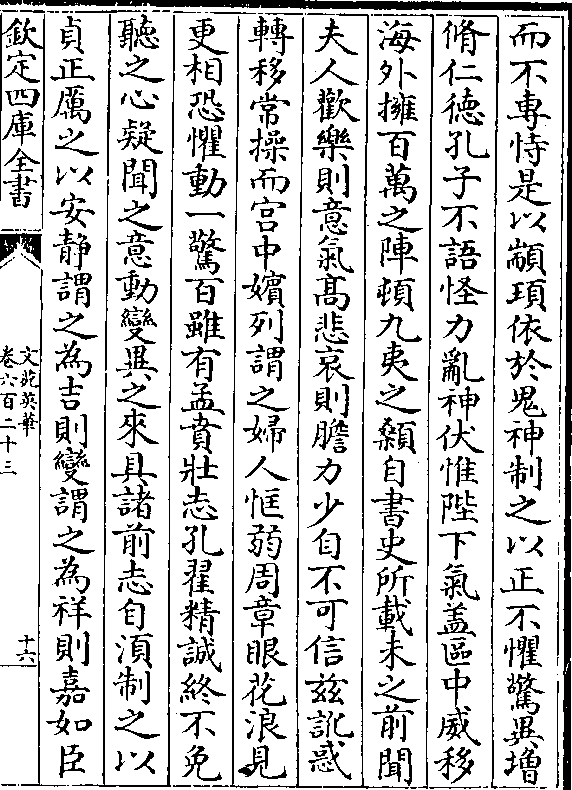 而不專恃是以顓頊依於鬼神制之以正不懼驚異増
脩仁徳孔子不語怪力亂神伏惟陛下氣盖區中威移
海外擁百萬之陣頓九夷之顙自書史所載未之前聞
夫人歡樂則意氣髙悲哀則膽力少自不可信兹訛惑
轉移常操而宫中嬪列謂之婦人恇弱周章眼花浪見
更相恐懼動一驚百雖有孟賁壯志孔翟精誠終不免
聽之心疑聞之意動變異之來具諸前志自湏制之以
貞正厲之以安静謂之為吉則變謂之為祥則嘉如臣
欽定四庫全書
文苑英華
卷六百二十三
十六